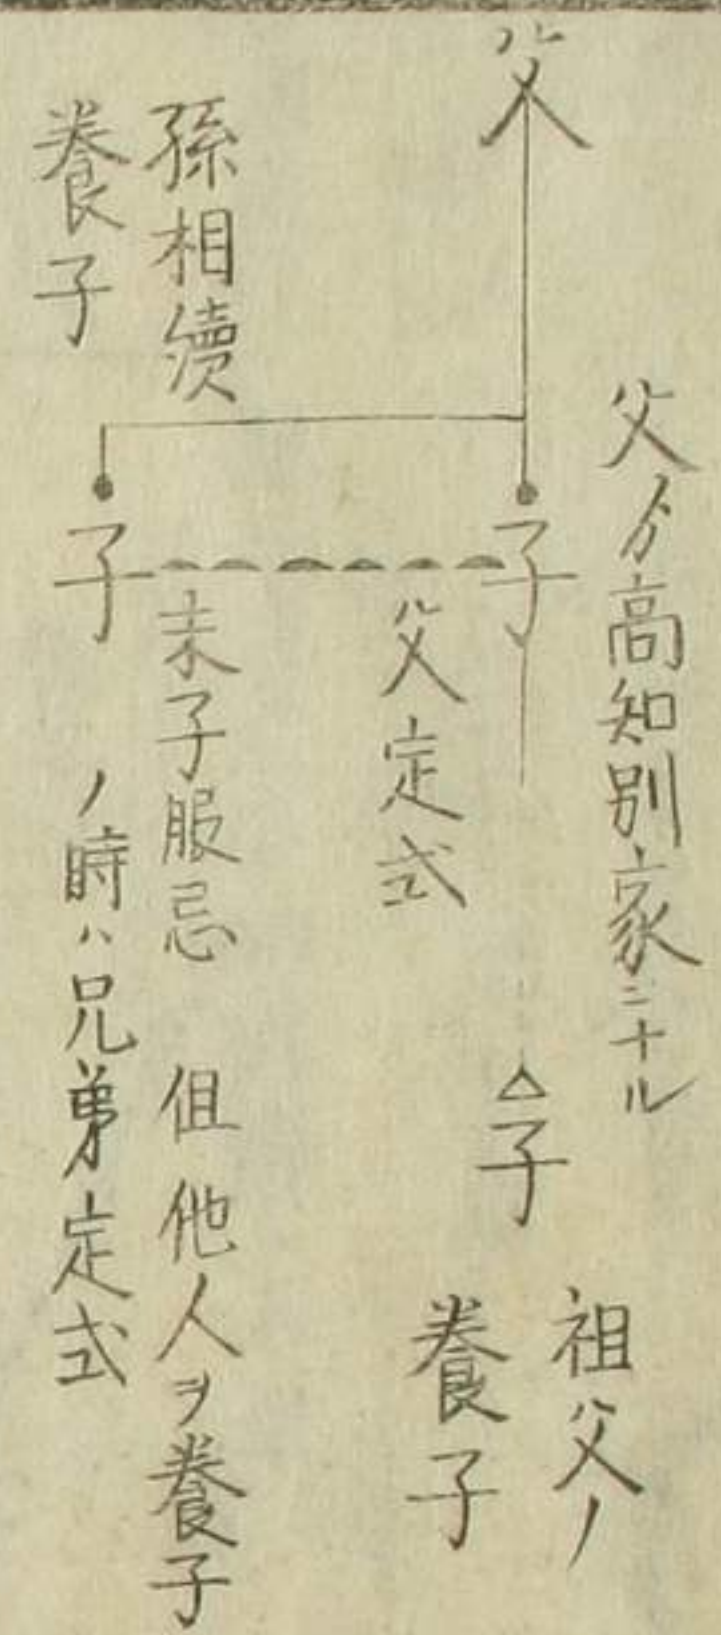 父
父分高知別家ニナル
子
△子
祖父ノ
養子
父定式
孫相續
養子
子
末子服忌 但他人ヲ養子
ノ時ハ兄弟定式